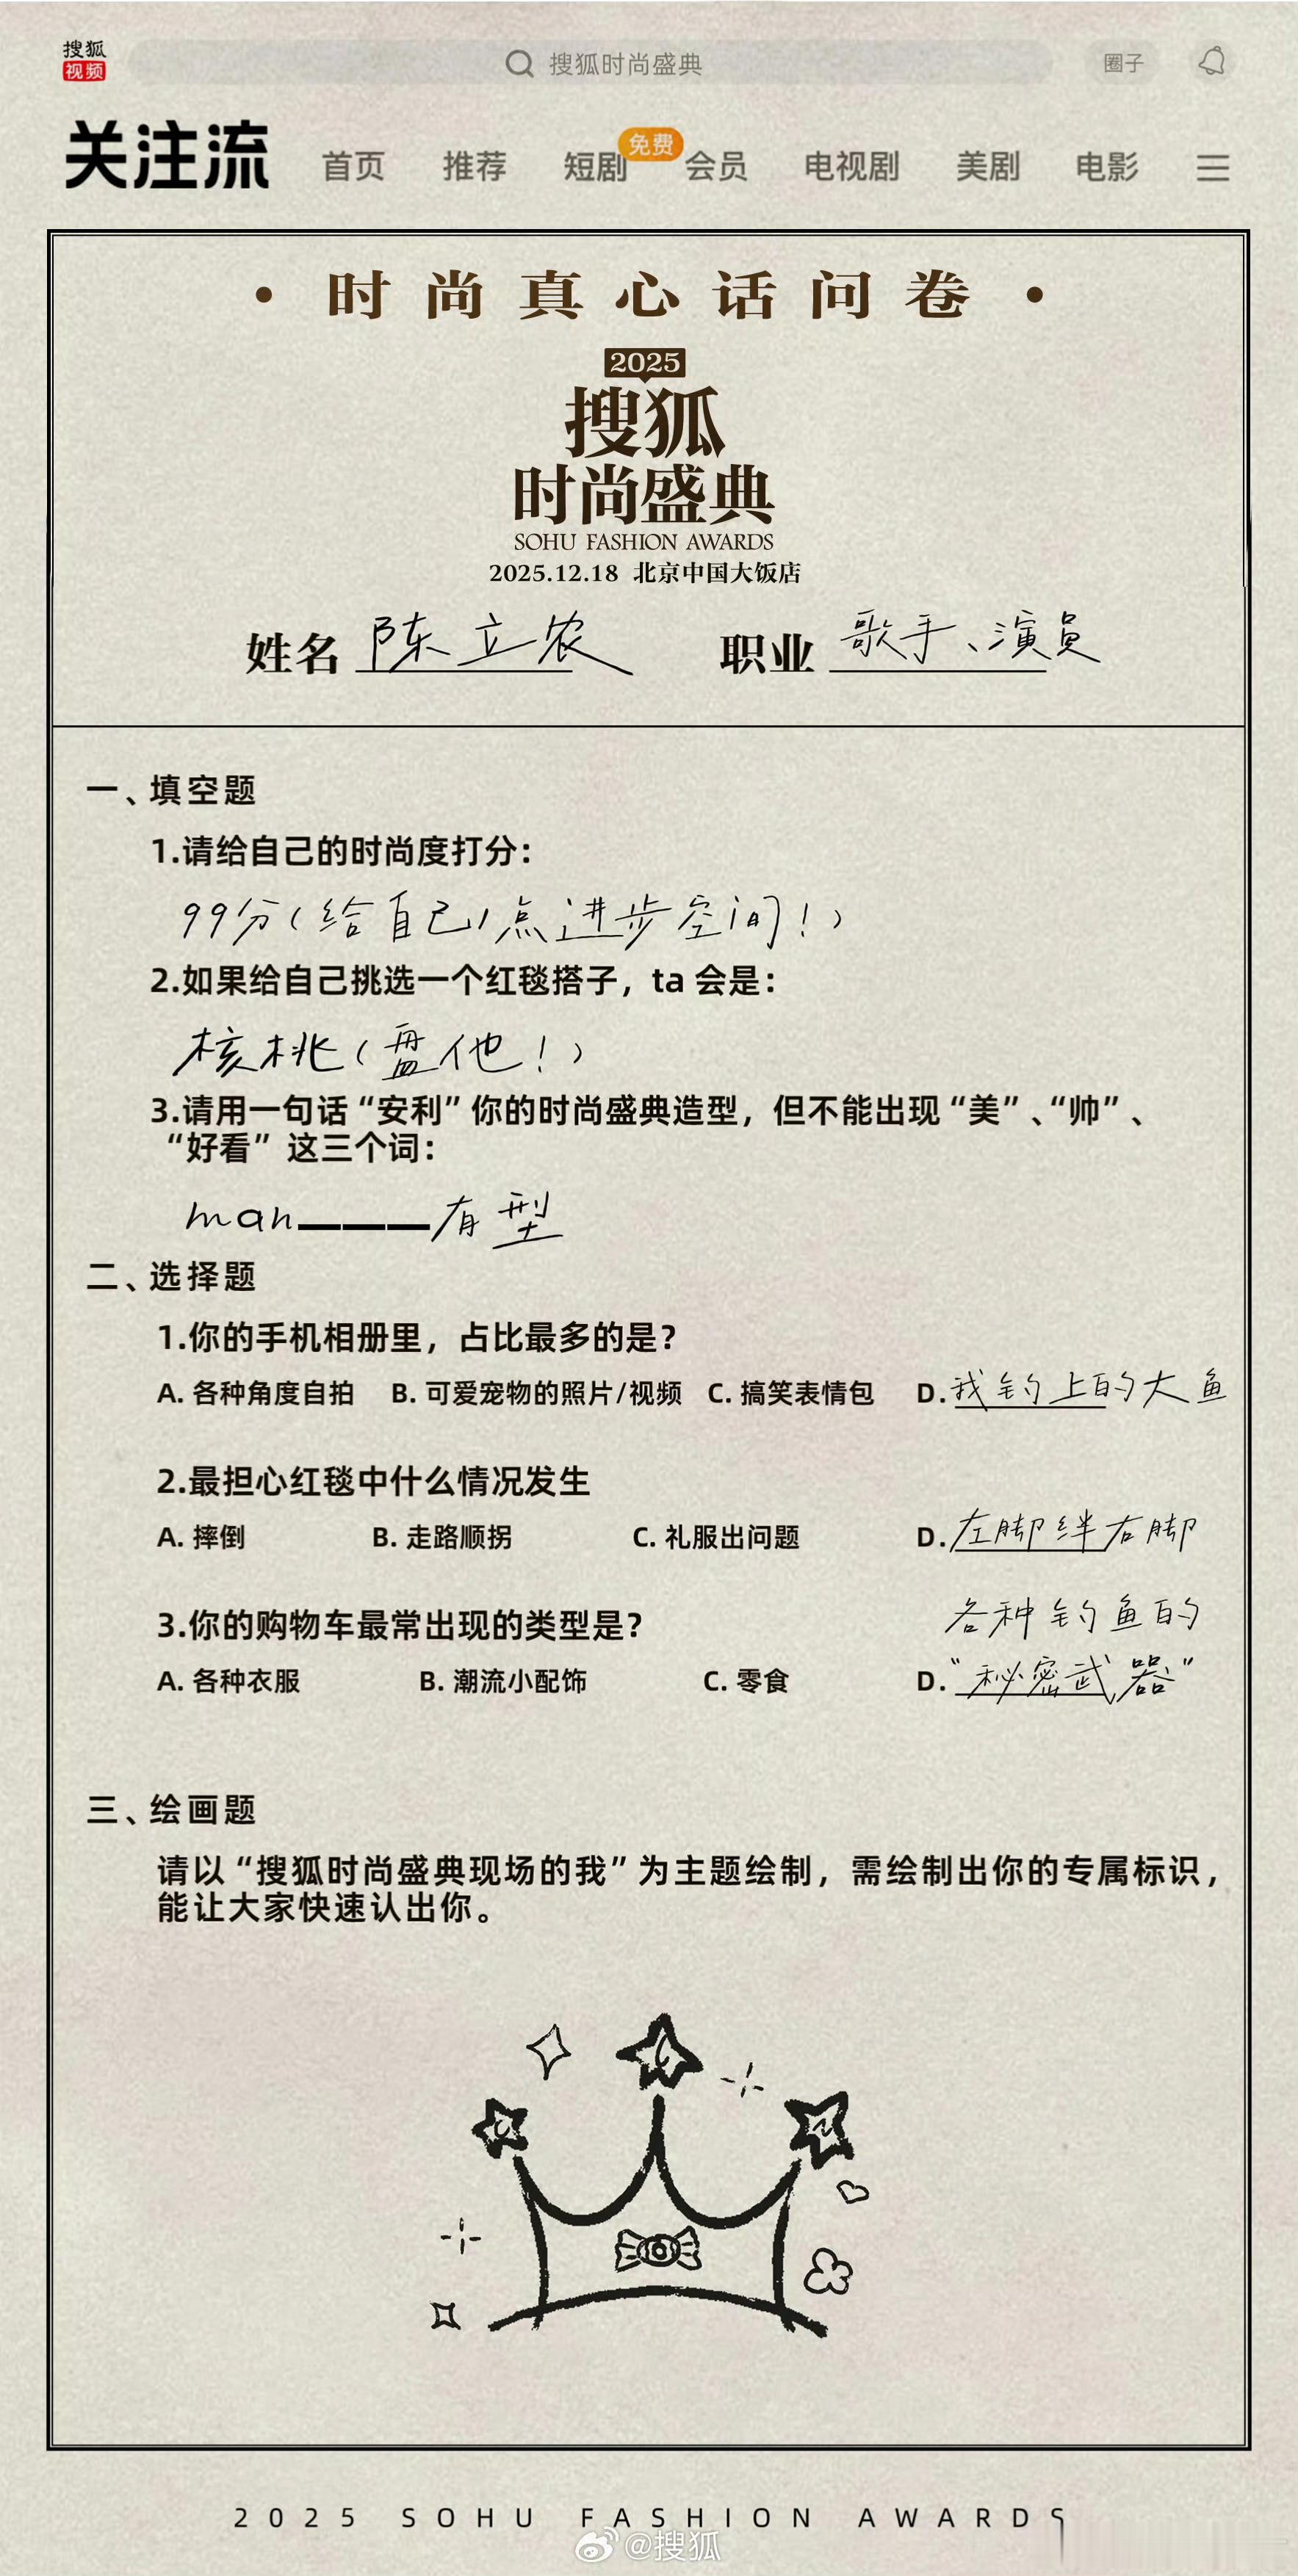 搜狐
视频
搜狐时尚盛典
圈子
关注流 首页 推荐 短剧 免费 会员 电视剧 美剧 电影
• 时尚真心话问卷 •
2025
搜狐
时尚盛典
SOHU FASHION AWARDS
2025.12.18 北京中国大饭店
姓名 陈立农 职业 歌手、演员
一、填空题
1.请给自己的时尚度打分：
99分（给自己1点进步空间！）
2.如果给自己挑选一个红毯搭子，ta 会是：
核桃（盘他！）
3.请用一句话“安利”你的时尚盛典造型，但不能出现“美”、“帅”、
“好看”这三个词：
man———有型
二、选择题
1.你的手机相册里，占比最多的是？
A. 各种角度自拍 B. 可爱宠物的照片/视频 C. 搞笑表情包 D. 我钓上的大鱼
2.最担心红毯中什么情况发生
A. 摔倒 B. 走路顺拐 C. 礼服出问题 D. 左脚绊右脚
3.你的购物车最常出现的类型是？
各种钓鱼的
A. 各种衣服 B. 潮流小配饰 C. 零食 D. “秘密武器”
三、绘画题
请以“搜狐时尚盛典现场的我”为主题绘制，需绘制出你的专属标识，
能让大家快速认出你。
2025 SOHU FASHION AWARDS
@搜狐